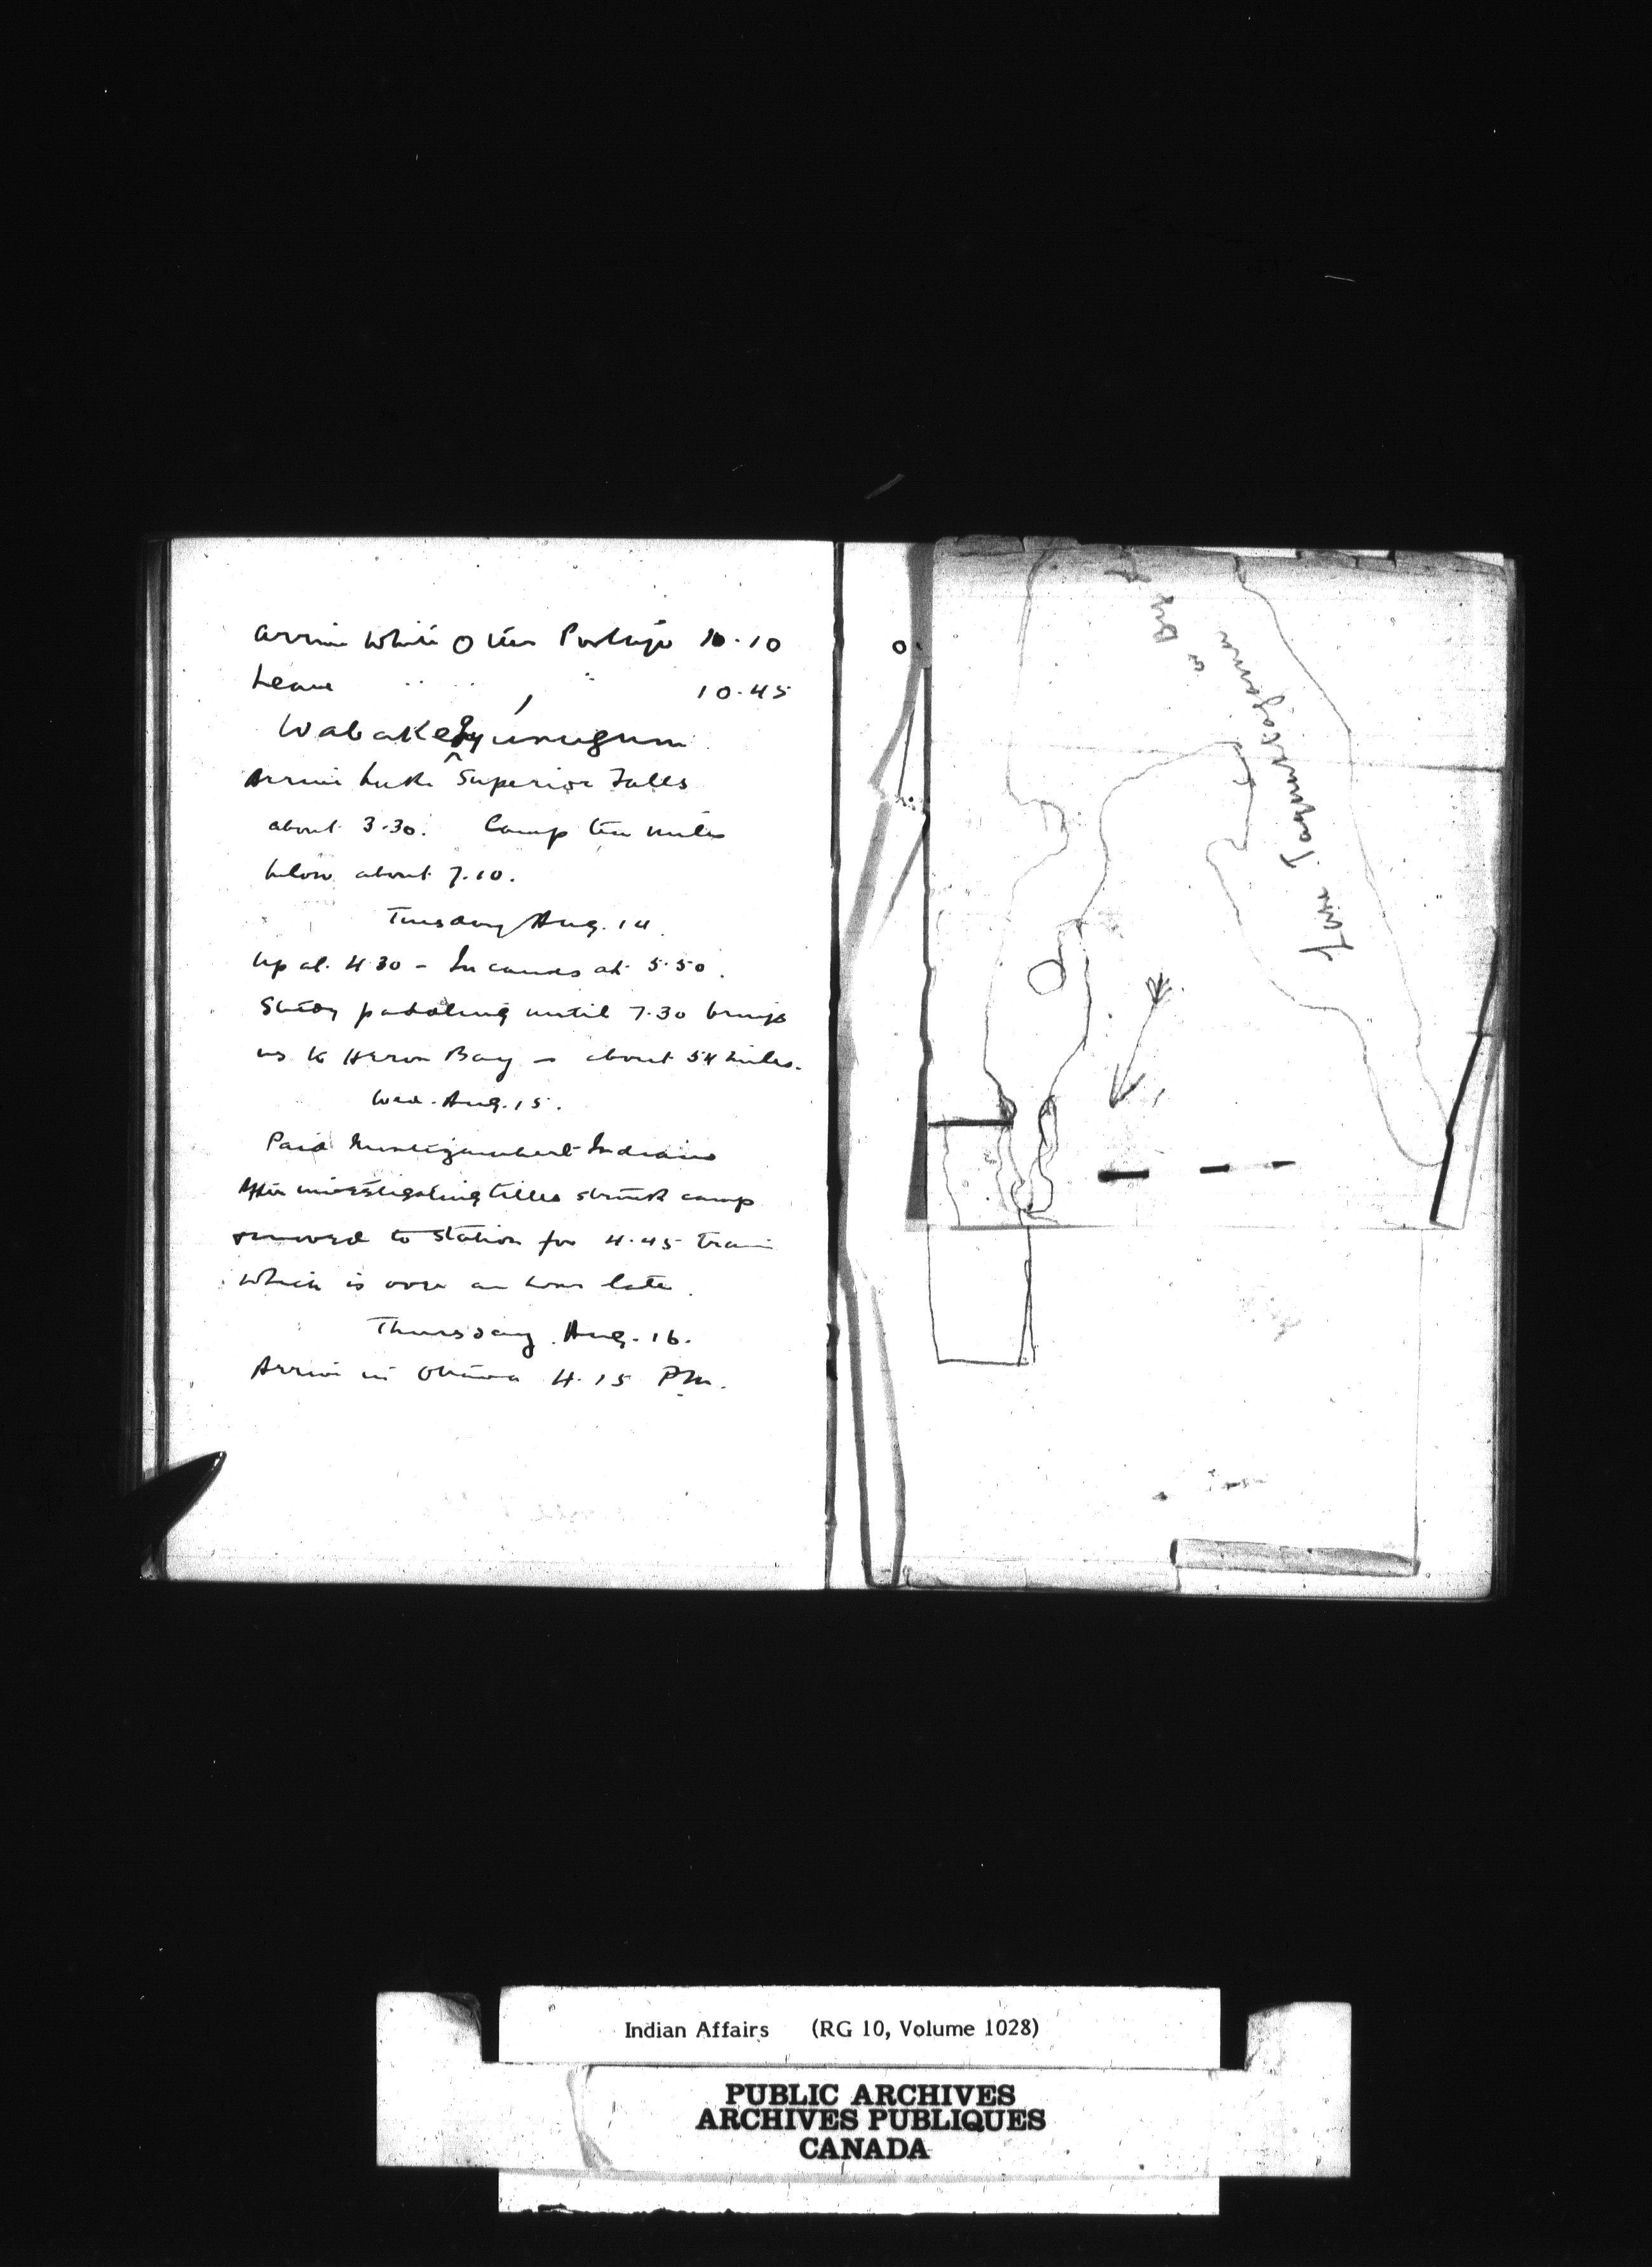 Arrive White Otter Portage 10.10
Leave " " " 10.45
Arrive Lake Superior Falls
about 3.30. Camp ten miles
below about 7.10.
Tuesday Aug. 14.
Up at 4.30 - In canoes at 5.50.
Steady paddling until 7.30 brings
us to Heron Bay - about 54 miles.
Wed. Aug. 15.
Paid Indians
After investigating titles struck camp
& moved to station for 4.45 train
which is over an hour late.
Thursday Aug. 16.
Arrive in Ottawa 4.15 P.M.
Indian Affairs (RG 10, Volume 1028)
PUBLIC ARCHIVES
ARCHIVES PUBLIQUES
CANADA